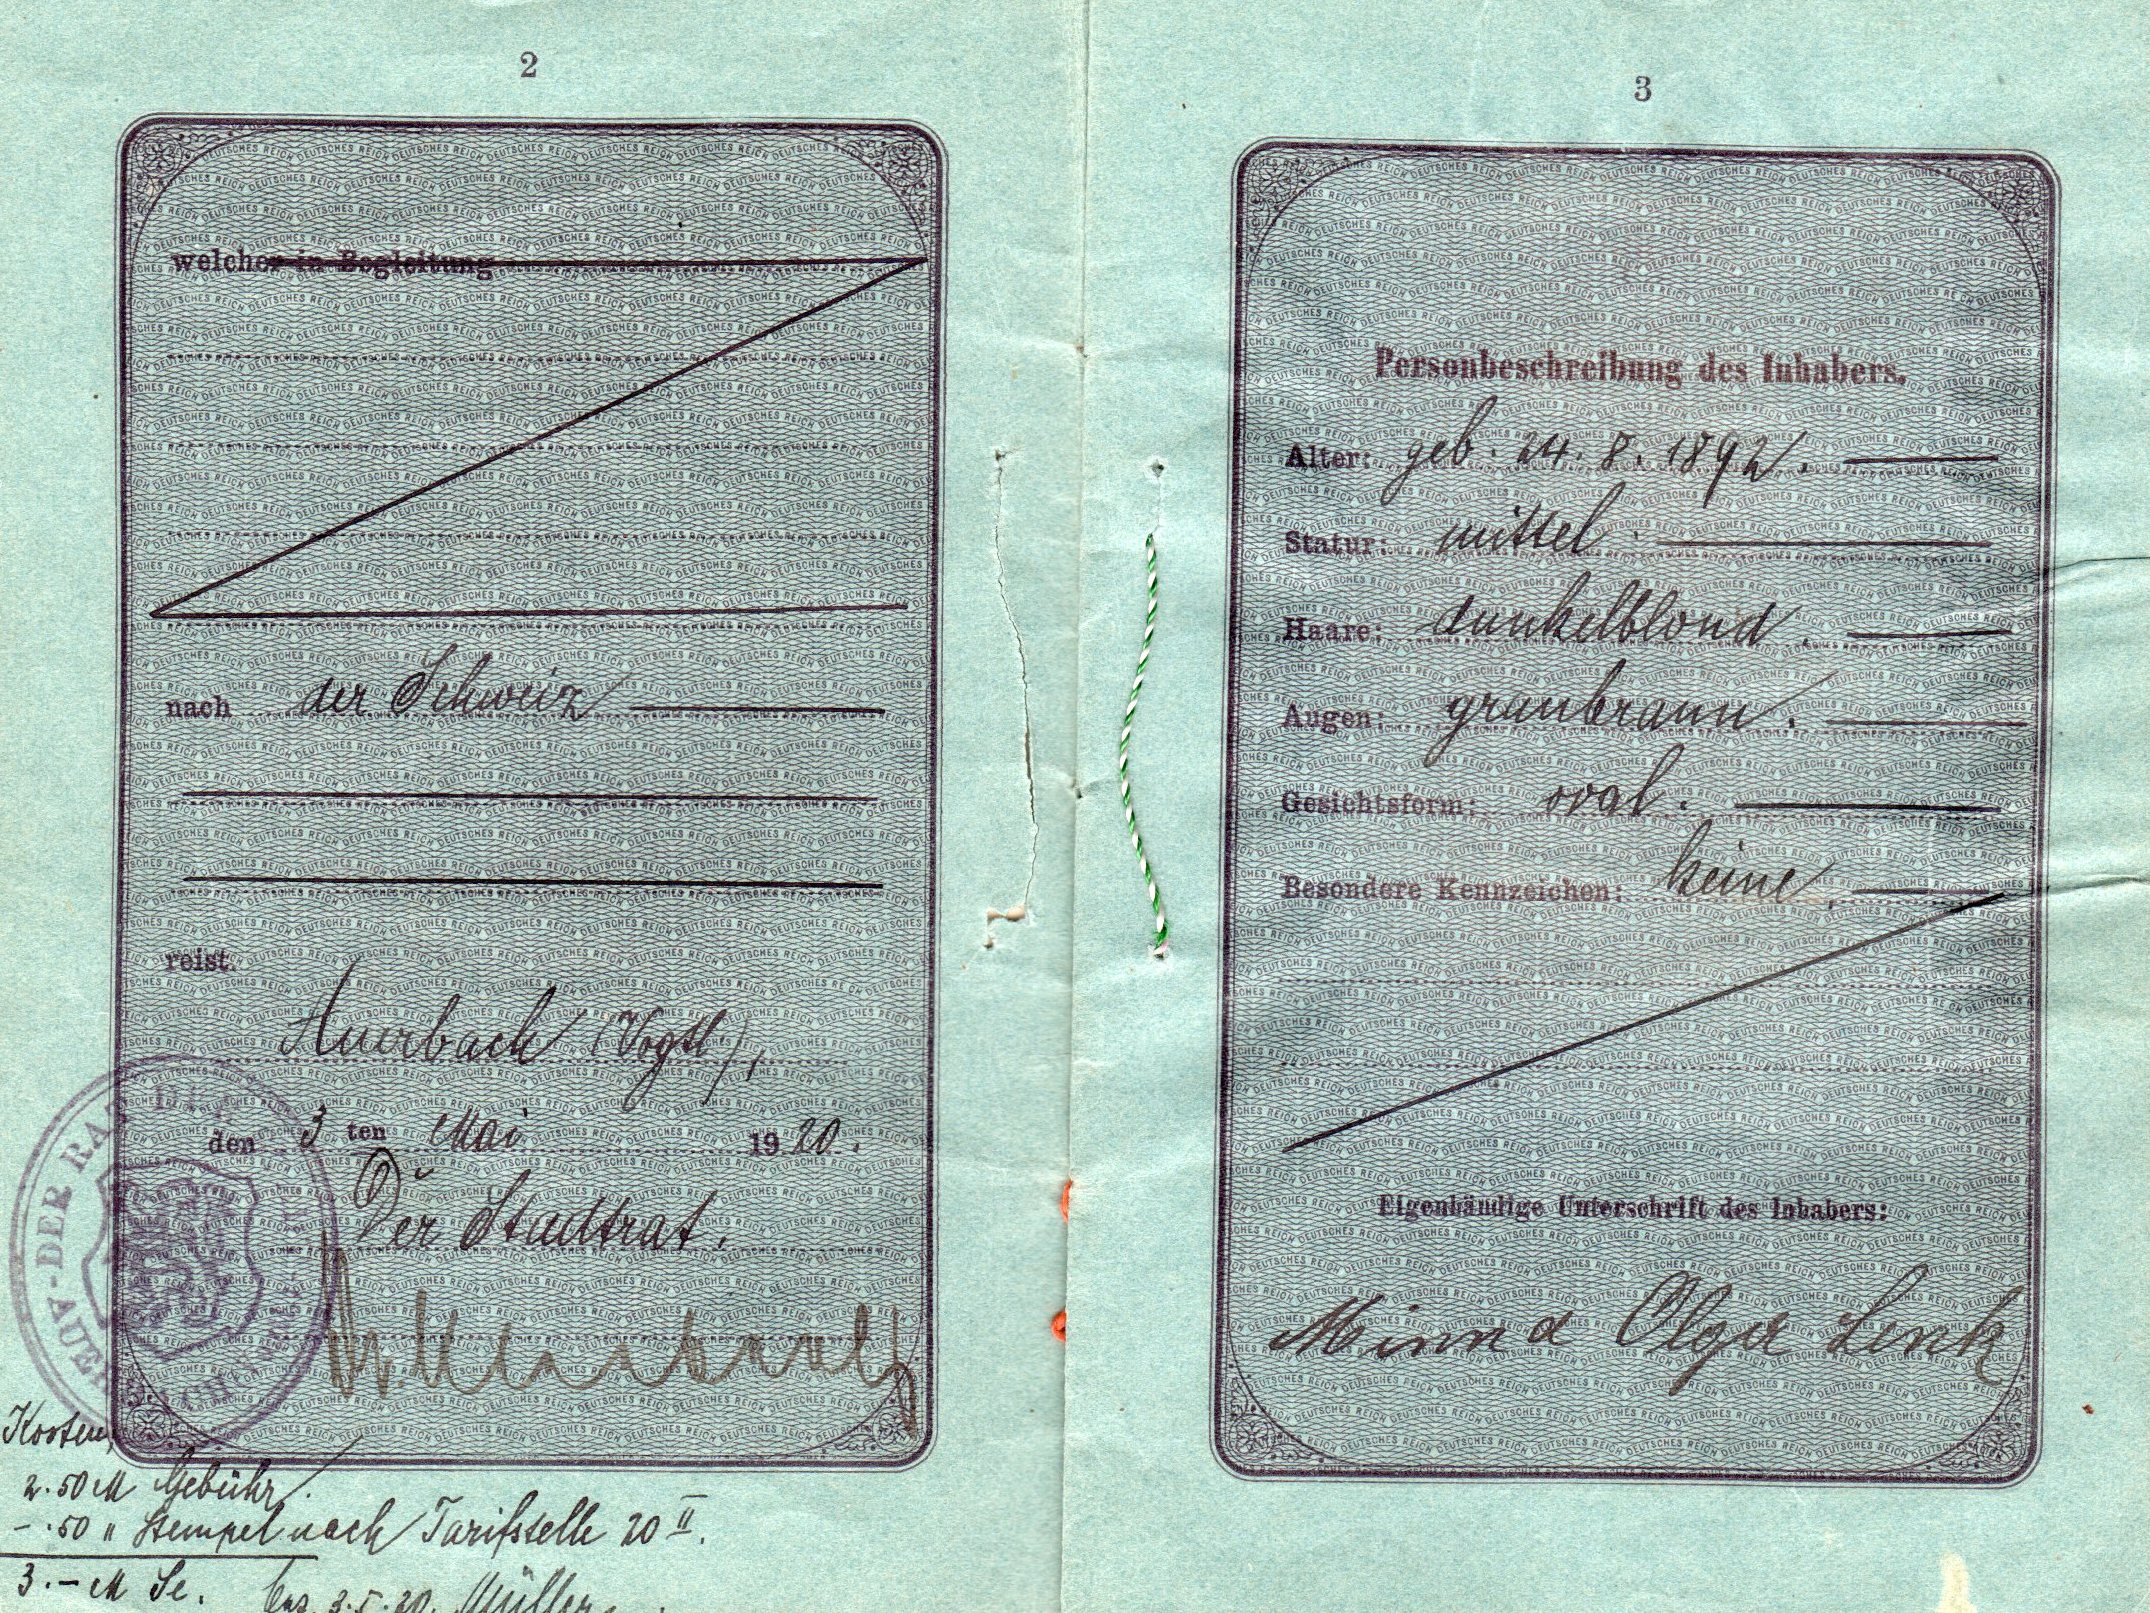 2
welcher in Begleitung
nach der Schweiz
reist.
Auerbach (Vogtl),
den 3 ten Mai 1920.
Der Stadtrat.
DER RAT
AUERBACH
Kosten,
2.50 M Gebühr.
-.50 " Stempel nach Tarifstelle 20 II.
3.- M Se. bez. 3.5.20. Müller
3
Personbeschreibung des Inhabers.
Alter: geb. 24.8.1892.
Statur: mittel.
Haare: dunkelblond.
Augen: graubraun.
Gesichtsform: oval.
Besondere Kennzeichen: keine.
Eigenhändige Unterschrift des Inhabers:
Minna Olga Lenk